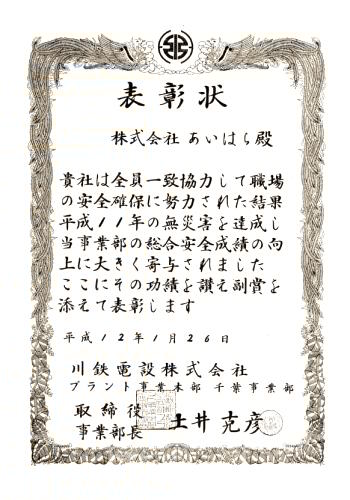 表彰状
株式会社あいはら殿
貴社は全員一致協力して職場
の安全確保に努力された結果
平成11年の無災害を達成し
当事業部の総合安全成績の向
上に大きく寄与されました
ここにその功績を讃え副賞を
添えて表彰します
平成12年1月26日
川鉄電設株式会社
プラント事業本部 千葉事業部
取締役
事業部長 土井克彦